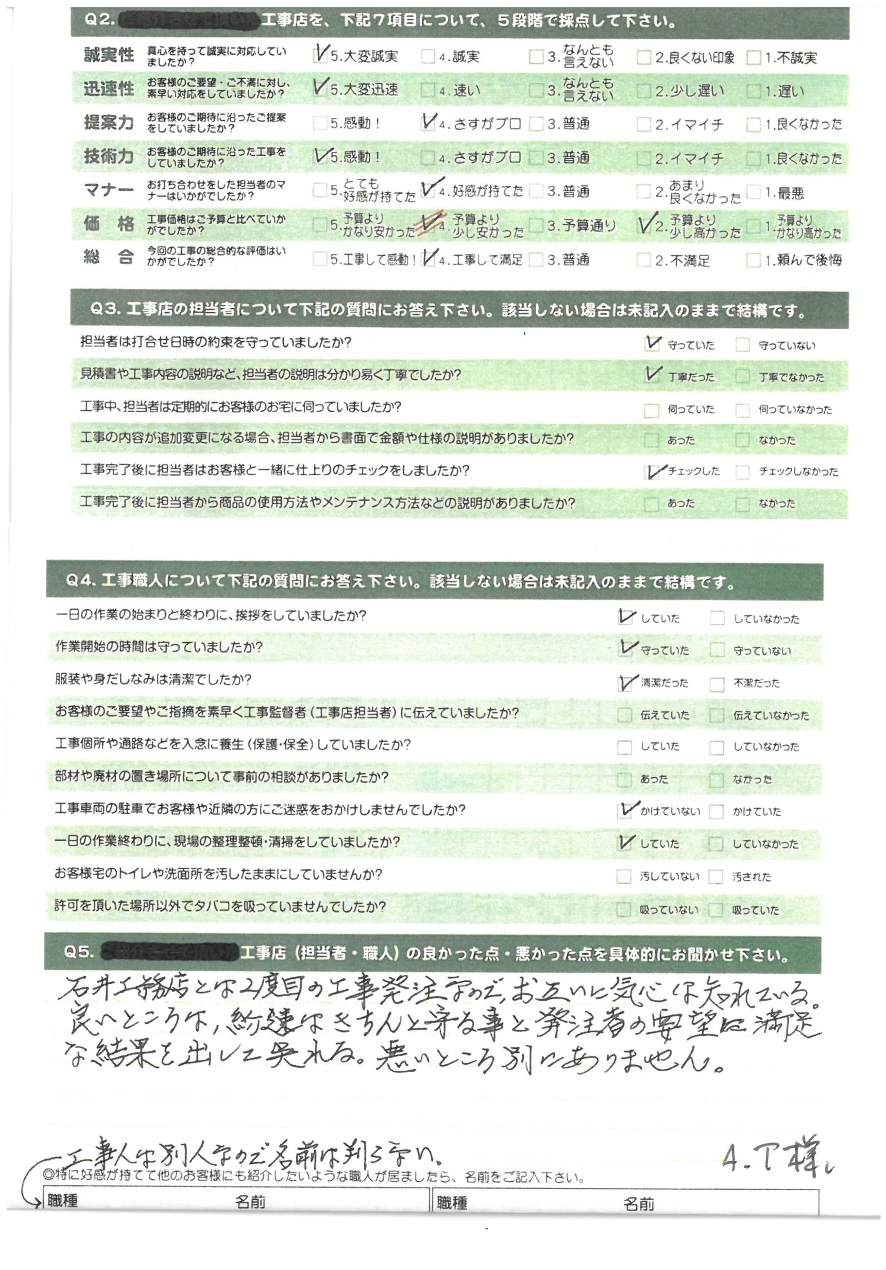 Q2. 工事店を、下記7項目について、5段階で採点して下さい。
誠実性 真心を持って誠実に対応していましたか? ✓5.大変誠実 □4.誠実 □3.なんとも言えない □2.良くない印象 □1.不誠実
迅速性 お客様のご要望・ご不満に対し、素早い対応をしていましたか? ✓5.大変迅速 □4.速い □3.なんとも言えない □2.少し遅い □1.遅い
提案力 お客様のご期待に沿ったご提案をしていましたか? □5.感動! ✓4.さすがプロ □3.普通 □2.イマイチ □1.良くなかった
技術力 お客様のご期待に沿った工事をしていましたか? ✓5.感動! □4.さすがプロ □3.普通 □2.イマイチ □1.良くなかった
マナー お打ち合わせをした担当者のマナーはいかがでしたか? □5.とても好感が持てた ✓4.好感が持てた □3.普通 □2.あまり良くなかった □1.最悪
価格 工事価格はご予算と比べていかがでしたか? □5.予算よりかなり安かった ✓4.予算より少し安かった □3.予算通り ✓2.予算より少し高かった □1.予算よりかなり高かった
総合 今回の工事の総合的な評価はいかがでしたか? □5.工事して感動! ✓4.工事して満足 □3.普通 □2.不満足 □1.頼んで後悔
Q3.工事店の担当者について下記の質問にお答え下さい。該当しない場合は未記入のままで結構です。
担当者は打合せ日時の約束を守っていましたか? ✓守っていた □守っていない
見積書や工事内容の説明など、担当者の説明は分かり易く丁寧でしたか? ✓丁寧だった □丁寧でなかった
工事中、担当者は定期的にお客様のお宅に伺っていましたか? □伺っていた □伺っていなかった
工事の内容が追加変更になる場合、担当者から書面で金額や仕様の説明がありましたか? □あった □なかった
工事完了後に担当者はお客様と一緒に仕上りのチェックをしましたか? ✓チェックした □チェックしなかった
工事完了後に担当者から商品の使用方法やメンテナンス方法などの説明がありましたか? □あった □なかった
Q4.工事職人について下記の質問にお答え下さい。該当しない場合は未記入のままで結構です。
一日の作業の始まりと終わりに、挨拶をしていましたか? ✓していた □していなかった
作業開始の時間は守っていましたか? ✓守っていた □守っていない
服装や身だしなみは清潔でしたか? ✓清潔だった □不潔だった
お客様のご要望やご指摘を素早く工事監督者(工事店担当者)に伝えていましたか? □伝えていた □伝えていなかった
工事個所や通路などを入念に養生(保護・保全)していましたか? □していた □していなかった
部材や廃材の置き場所について事前の相談がありましたか? □あった □なかった
工事車両の駐車でお客様や近隣の方にご迷惑をおかけしませんでしたか? ✓かけていない □かけていた
一日の作業終わりに、現場の整理整頓・清掃をしていましたか? ✓していた □していなかった
お客様宅のトイレや洗面所を汚したままにしていませんか? □汚していない □汚された
許可を頂いた場所以外でタバコを吸っていませんでしたか? □吸っていない □吸っていた
Q5. 工事店(担当者・職人)の良かった点・悪かった点を具体的にお聞かせ下さい。
石井工務店とは2度目の工事発注なので、お互いに気心は知れている。
良いところは、約速はきちんと守る事と発注者の要望に満足
な結果を出して呉れる。悪いところ別にありません。
工事人は別人なので名前は判らない。 A.T様
◎特に好感が持てて他のお客様にも紹介したいような職人が居ましたら、名前をご記入下さい。
職種 名前 職種 名前